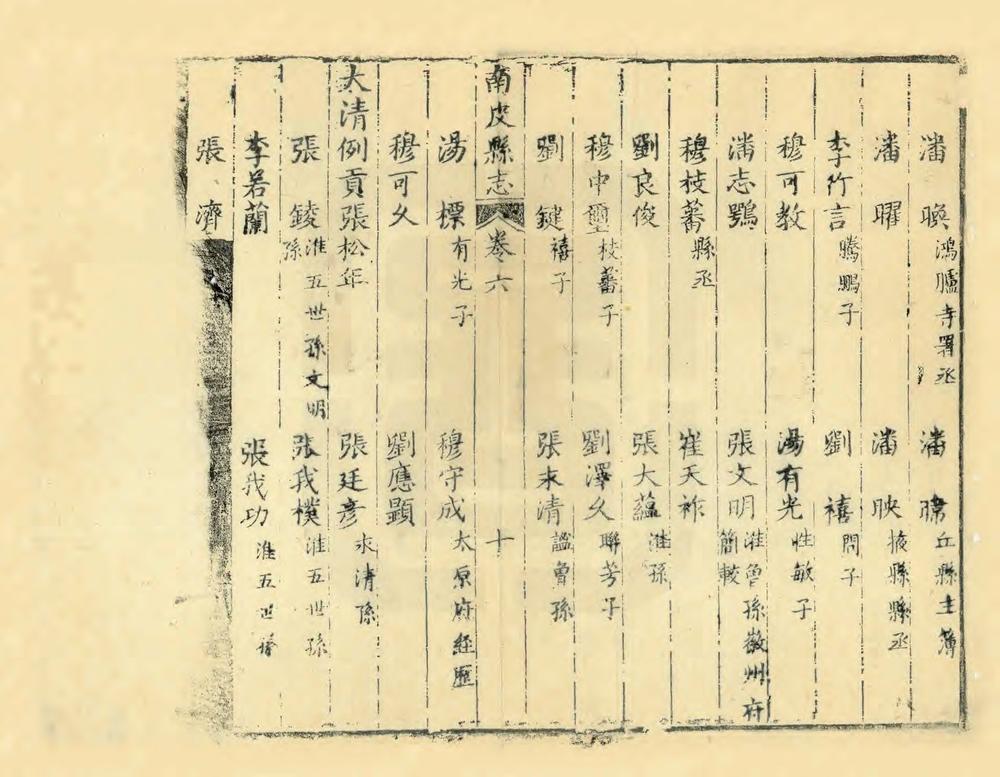 潘㬇鴻臚寺署丞　潘　丘縣主簿
潘曜　潘映掖縣縣丞
李行言騰鵬子　劉禧問子
穆可教　湯有光性敏子
潘志鶚　張文明淮曾孫徽州府簡較
穆枝蕃縣丞　崔天祚
劉良俊　張大蘊淮孫
穆中璽枝蕃子　劉澤久聯芳子
劉鍵禧子　張求清謐曾孫
南皮縣志　卷六　十
湯標有光子　穆守成太原府經歷
穆可久　劉應顯
大清例貢張松年　張廷彥求清孫
張錂淮五世孫文明孫　張我樸淮五世孫
李若蘭　張我功淮五世孫
張濟